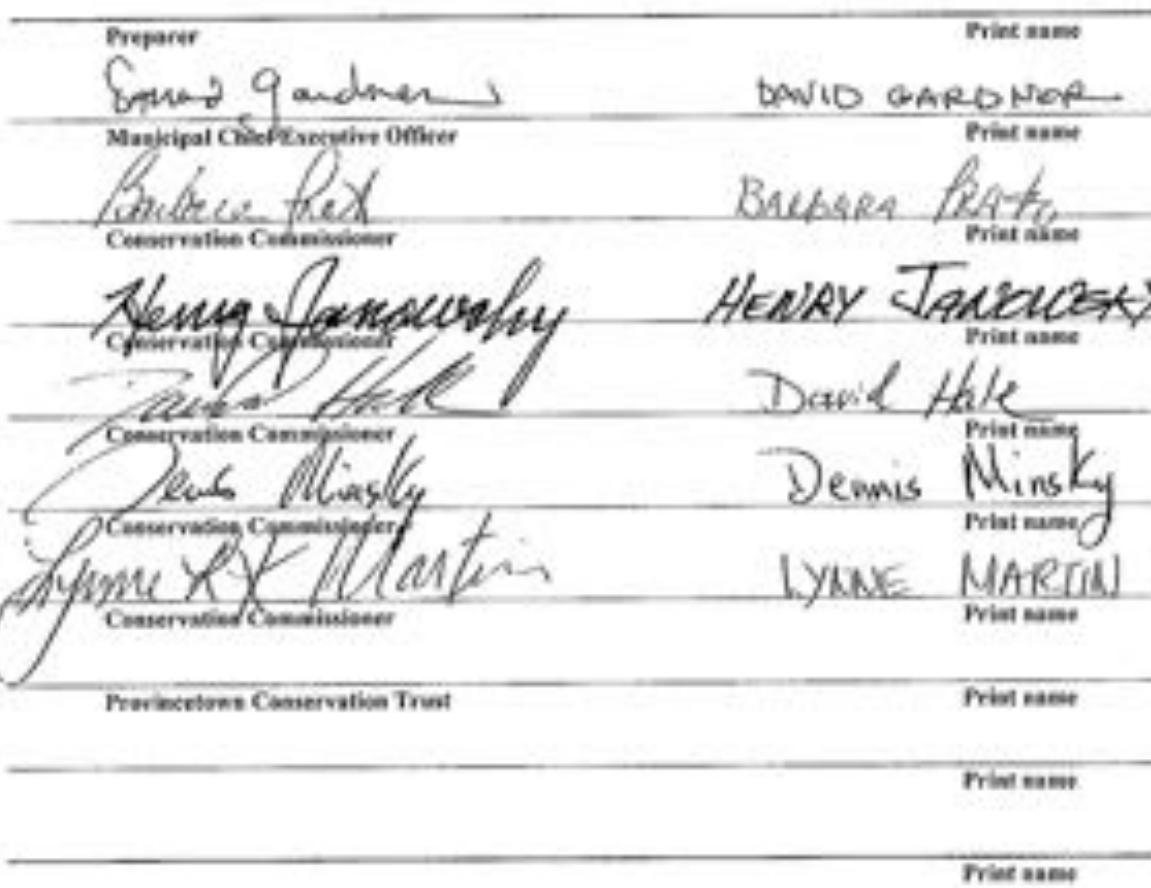 Preparer Print name
David Gardner DAVID GARDNER
Municipal Chief Executive Officer Print name
Barbara Prato BARBARA PRATO
Conservation Commissioner Print name
Henry Janowsky HENRY JANOWSKY
Conservation Commissioner Print name
David Hale David Hale
Conservation Commissioner Print name
Dennis Minsky Dennis Minsky
Conservation Commissioner Print name
Lynne Martin LYNNE MARTIN
Conservation Commissioner Print name
Provincetown Conservation Trust Print name
Print name
Print name